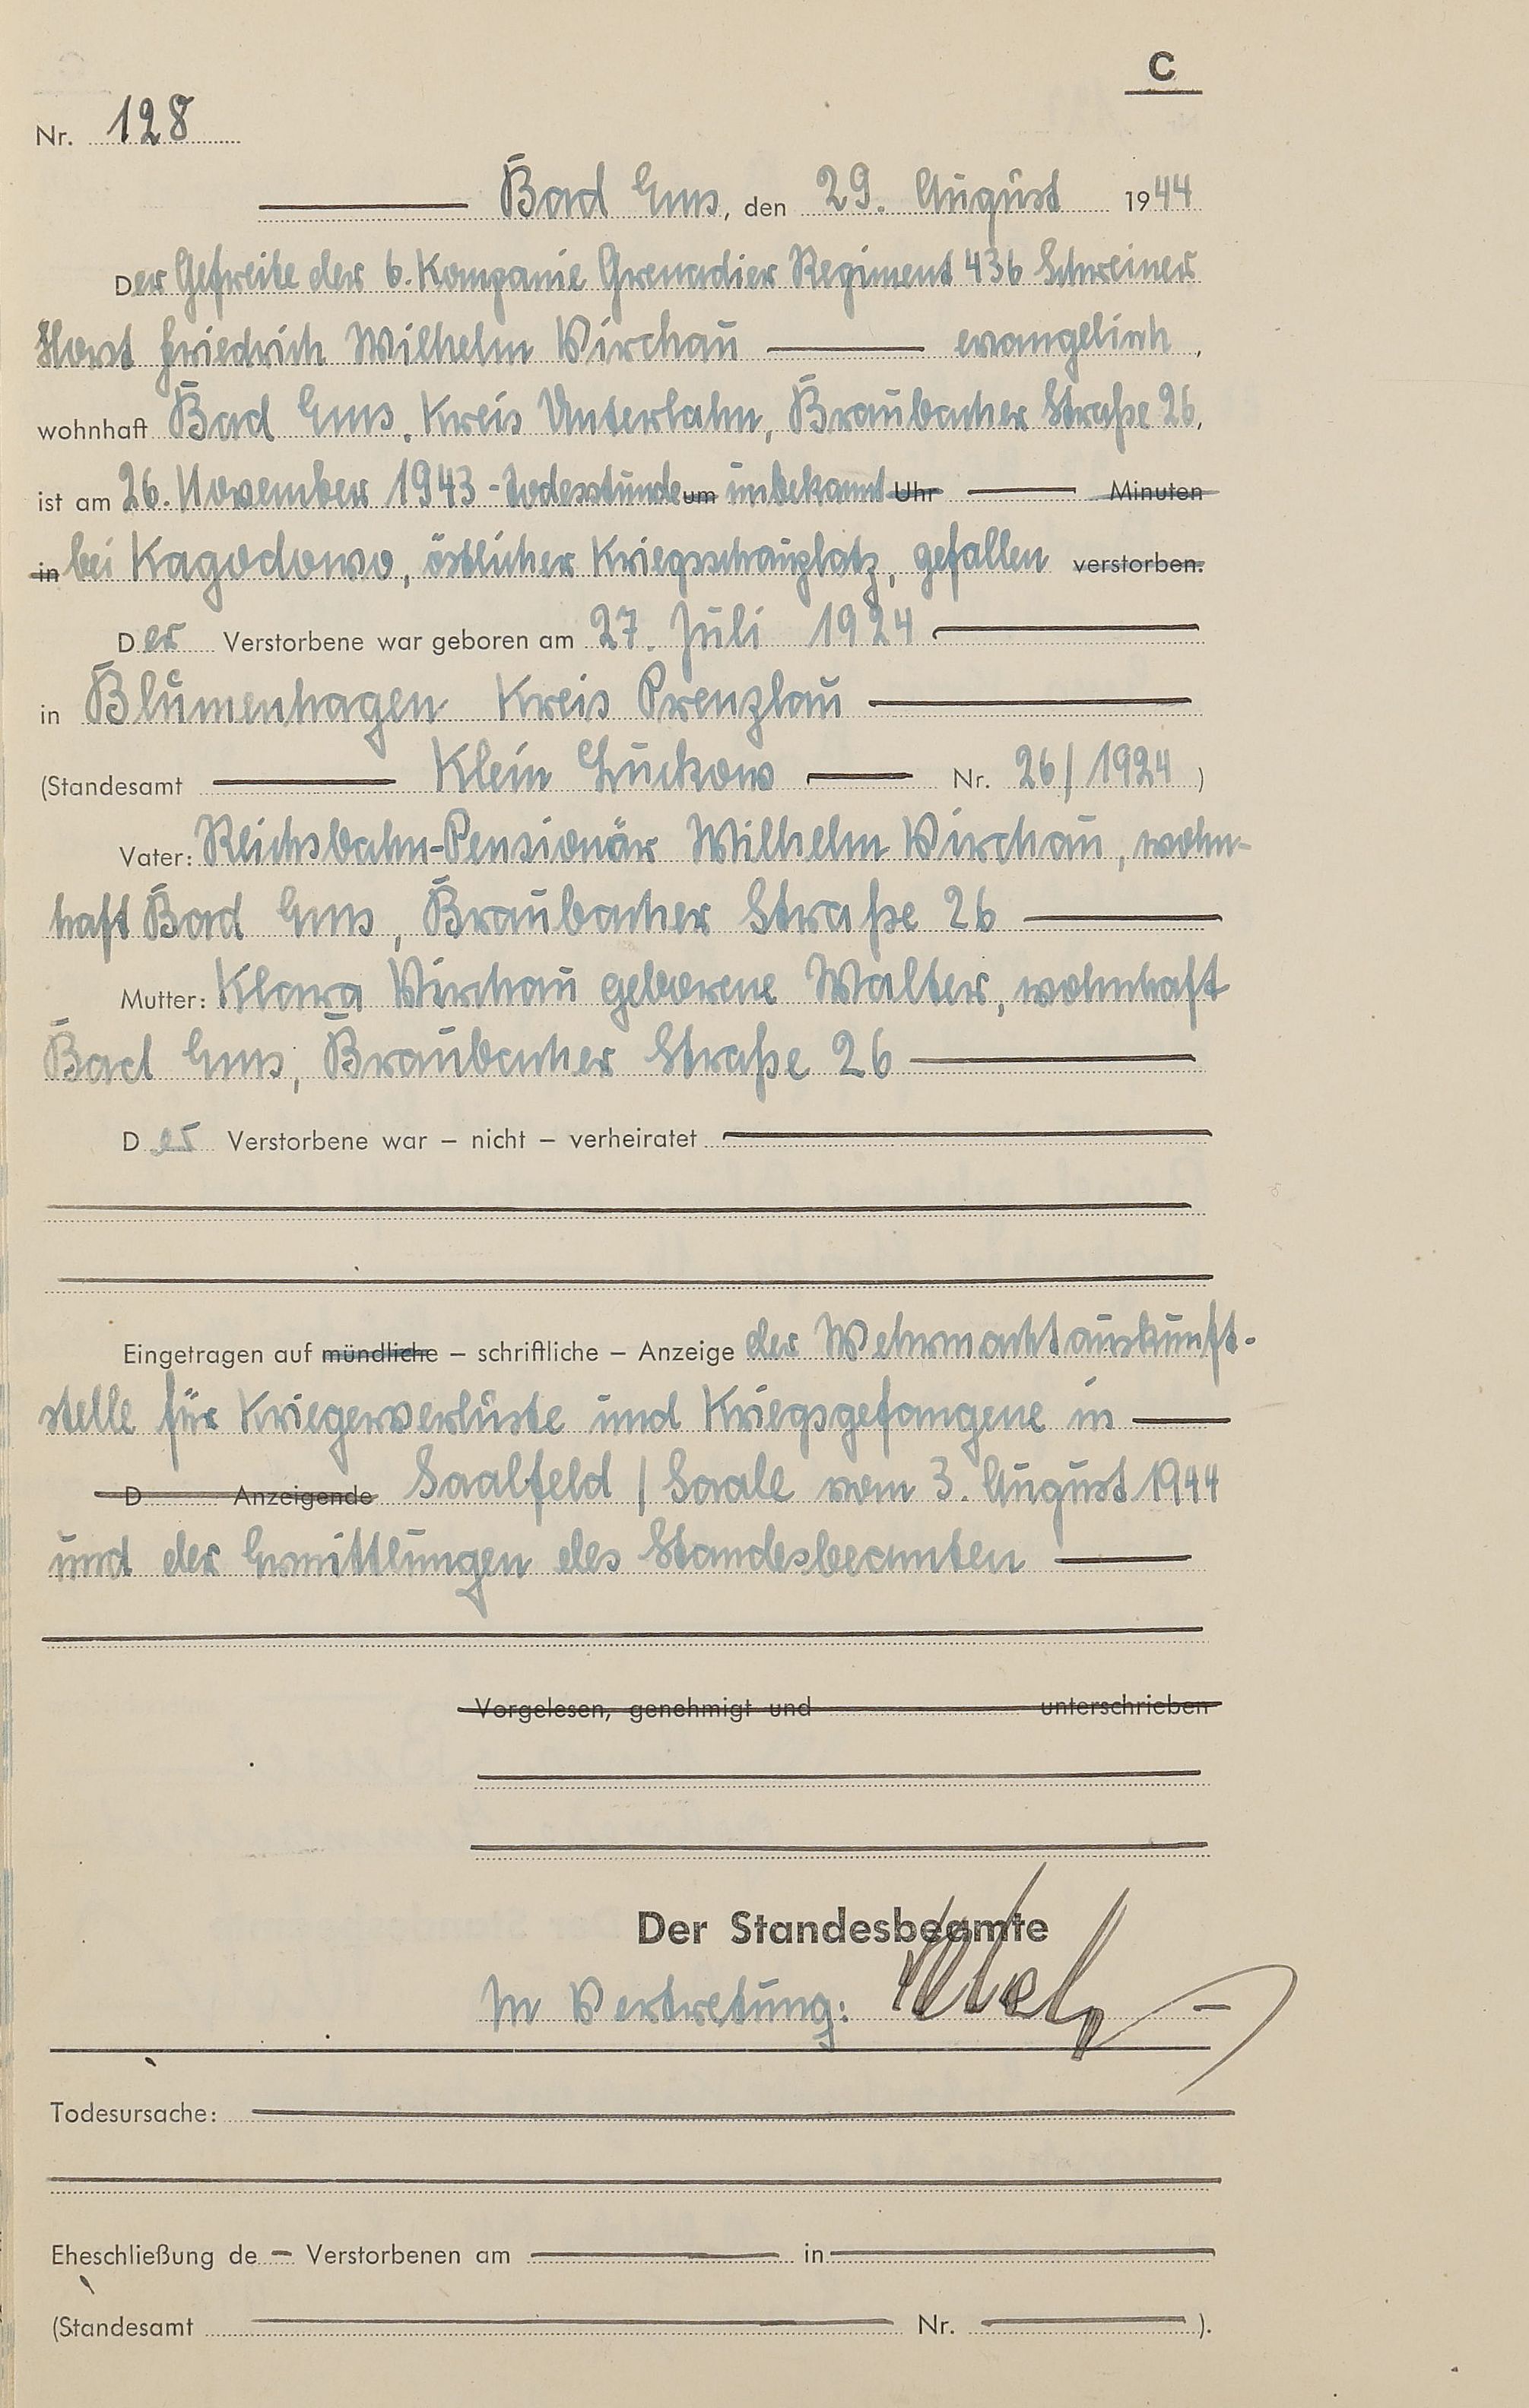 C
Nr. 128
Bad Ems, den 29. August 1944
Der Gefreite der 6. Kompanie Grenadier Regiment 436 Schreiner
Horst Friedrich Wilhelm Virchau evangelisch,
wohnhaft Bad Ems, Kreis Unterlahn, Braubacher Straße 26,
ist am 26. November 1943 - Todesstunde um unbekannt Uhr Minuten
in bei Kagodowo, östlicher Kriegsschauplatz, gefallen verstorben.
Der Verstorbene war geboren am 27. Juli 1924
in Blumenhagen Kreis Prenzlau
(Standesamt Klein Luckow Nr. 26/1924)
Vater: Reichsbahn-Pensionär Wilhelm Virchau, wohn-
haft Bad Ems, Braubacher Straße 26
Mutter: Klara Virchau geborene Walter, wohnhaft
Bad Ems, Braubacher Straße 26
Der Verstorbene war – nicht – verheiratet
Eingetragen auf mündliche – schriftliche – Anzeige der Wehrmachtauskunft-
stelle für Kriegerverluste und Kriegsgefangene in
D Anzeigende Saalfeld / Saale vom 3. August 1944
und der Ermittlungen des Standesbeamten
Vorgelesen, genehmigt und unterschrieben
Der Standesbeamte
In Vertretung:
Todesursache:
Eheschließung de – Verstorbenen am in
(Standesamt Nr. ).